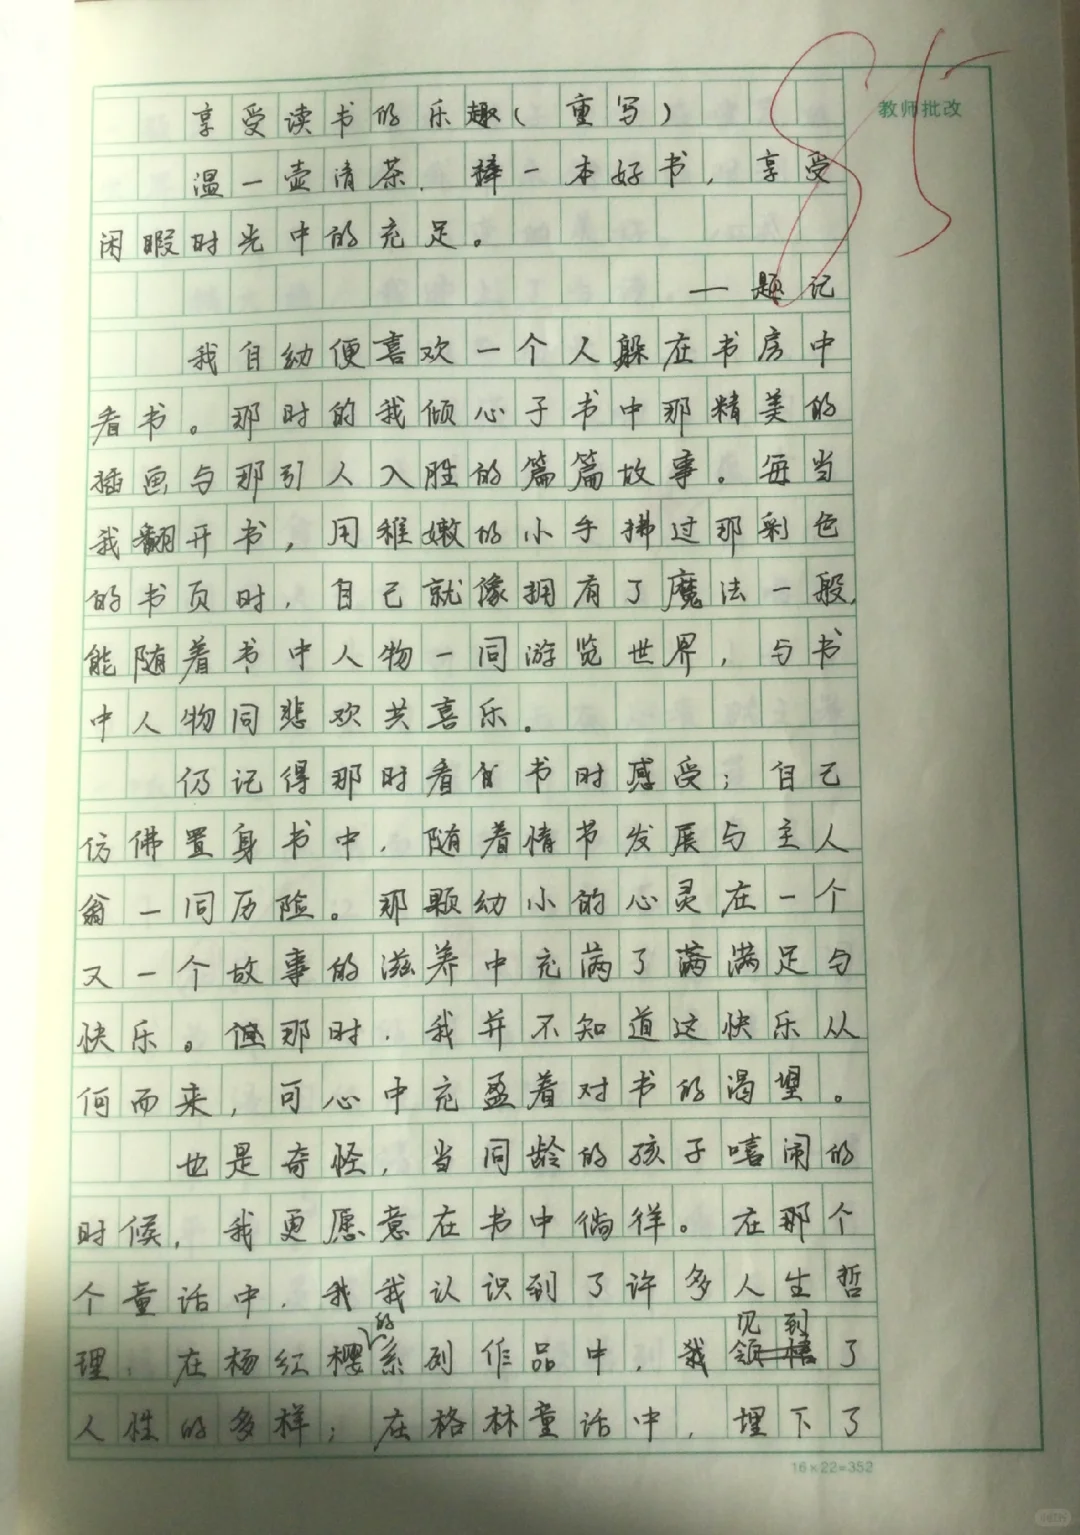 85
教师批改
享受读书的乐趣（重写）
温一壶清茶，捧一本好书，享受
闲暇时光中的充足。
—题记
我自幼便喜欢一个人躲在书房中
看书。那时的我倾心于书中那精美的
插画与那引人入胜的篇篇故事。每当
我翻开书，用稚嫩的小手拂过那彩色
的书页时，自己就像拥有了魔法一般，
能随着书中人物一同游览世界，与书
中人物同悲欢共喜乐。
仍记得那时看书时感受；自己
仿佛置身书中，随着情节发展与主人
翁一同历险。那颗幼小的心灵在一个
又一个故事的滋养中充满了满满足与
快乐。但那时，我并不知道这快乐从
何而来，可心中充盈着对书的渴望。
也是奇怪，当同龄的孩子嘻闹的
时候，我更愿意在书中徜徉。在那个
个童话中，我我认识到了许多人生哲
理，在杨红樱的系列作品中，我见到了
人性的多样；在格林童话中，埋下了
16×22=352